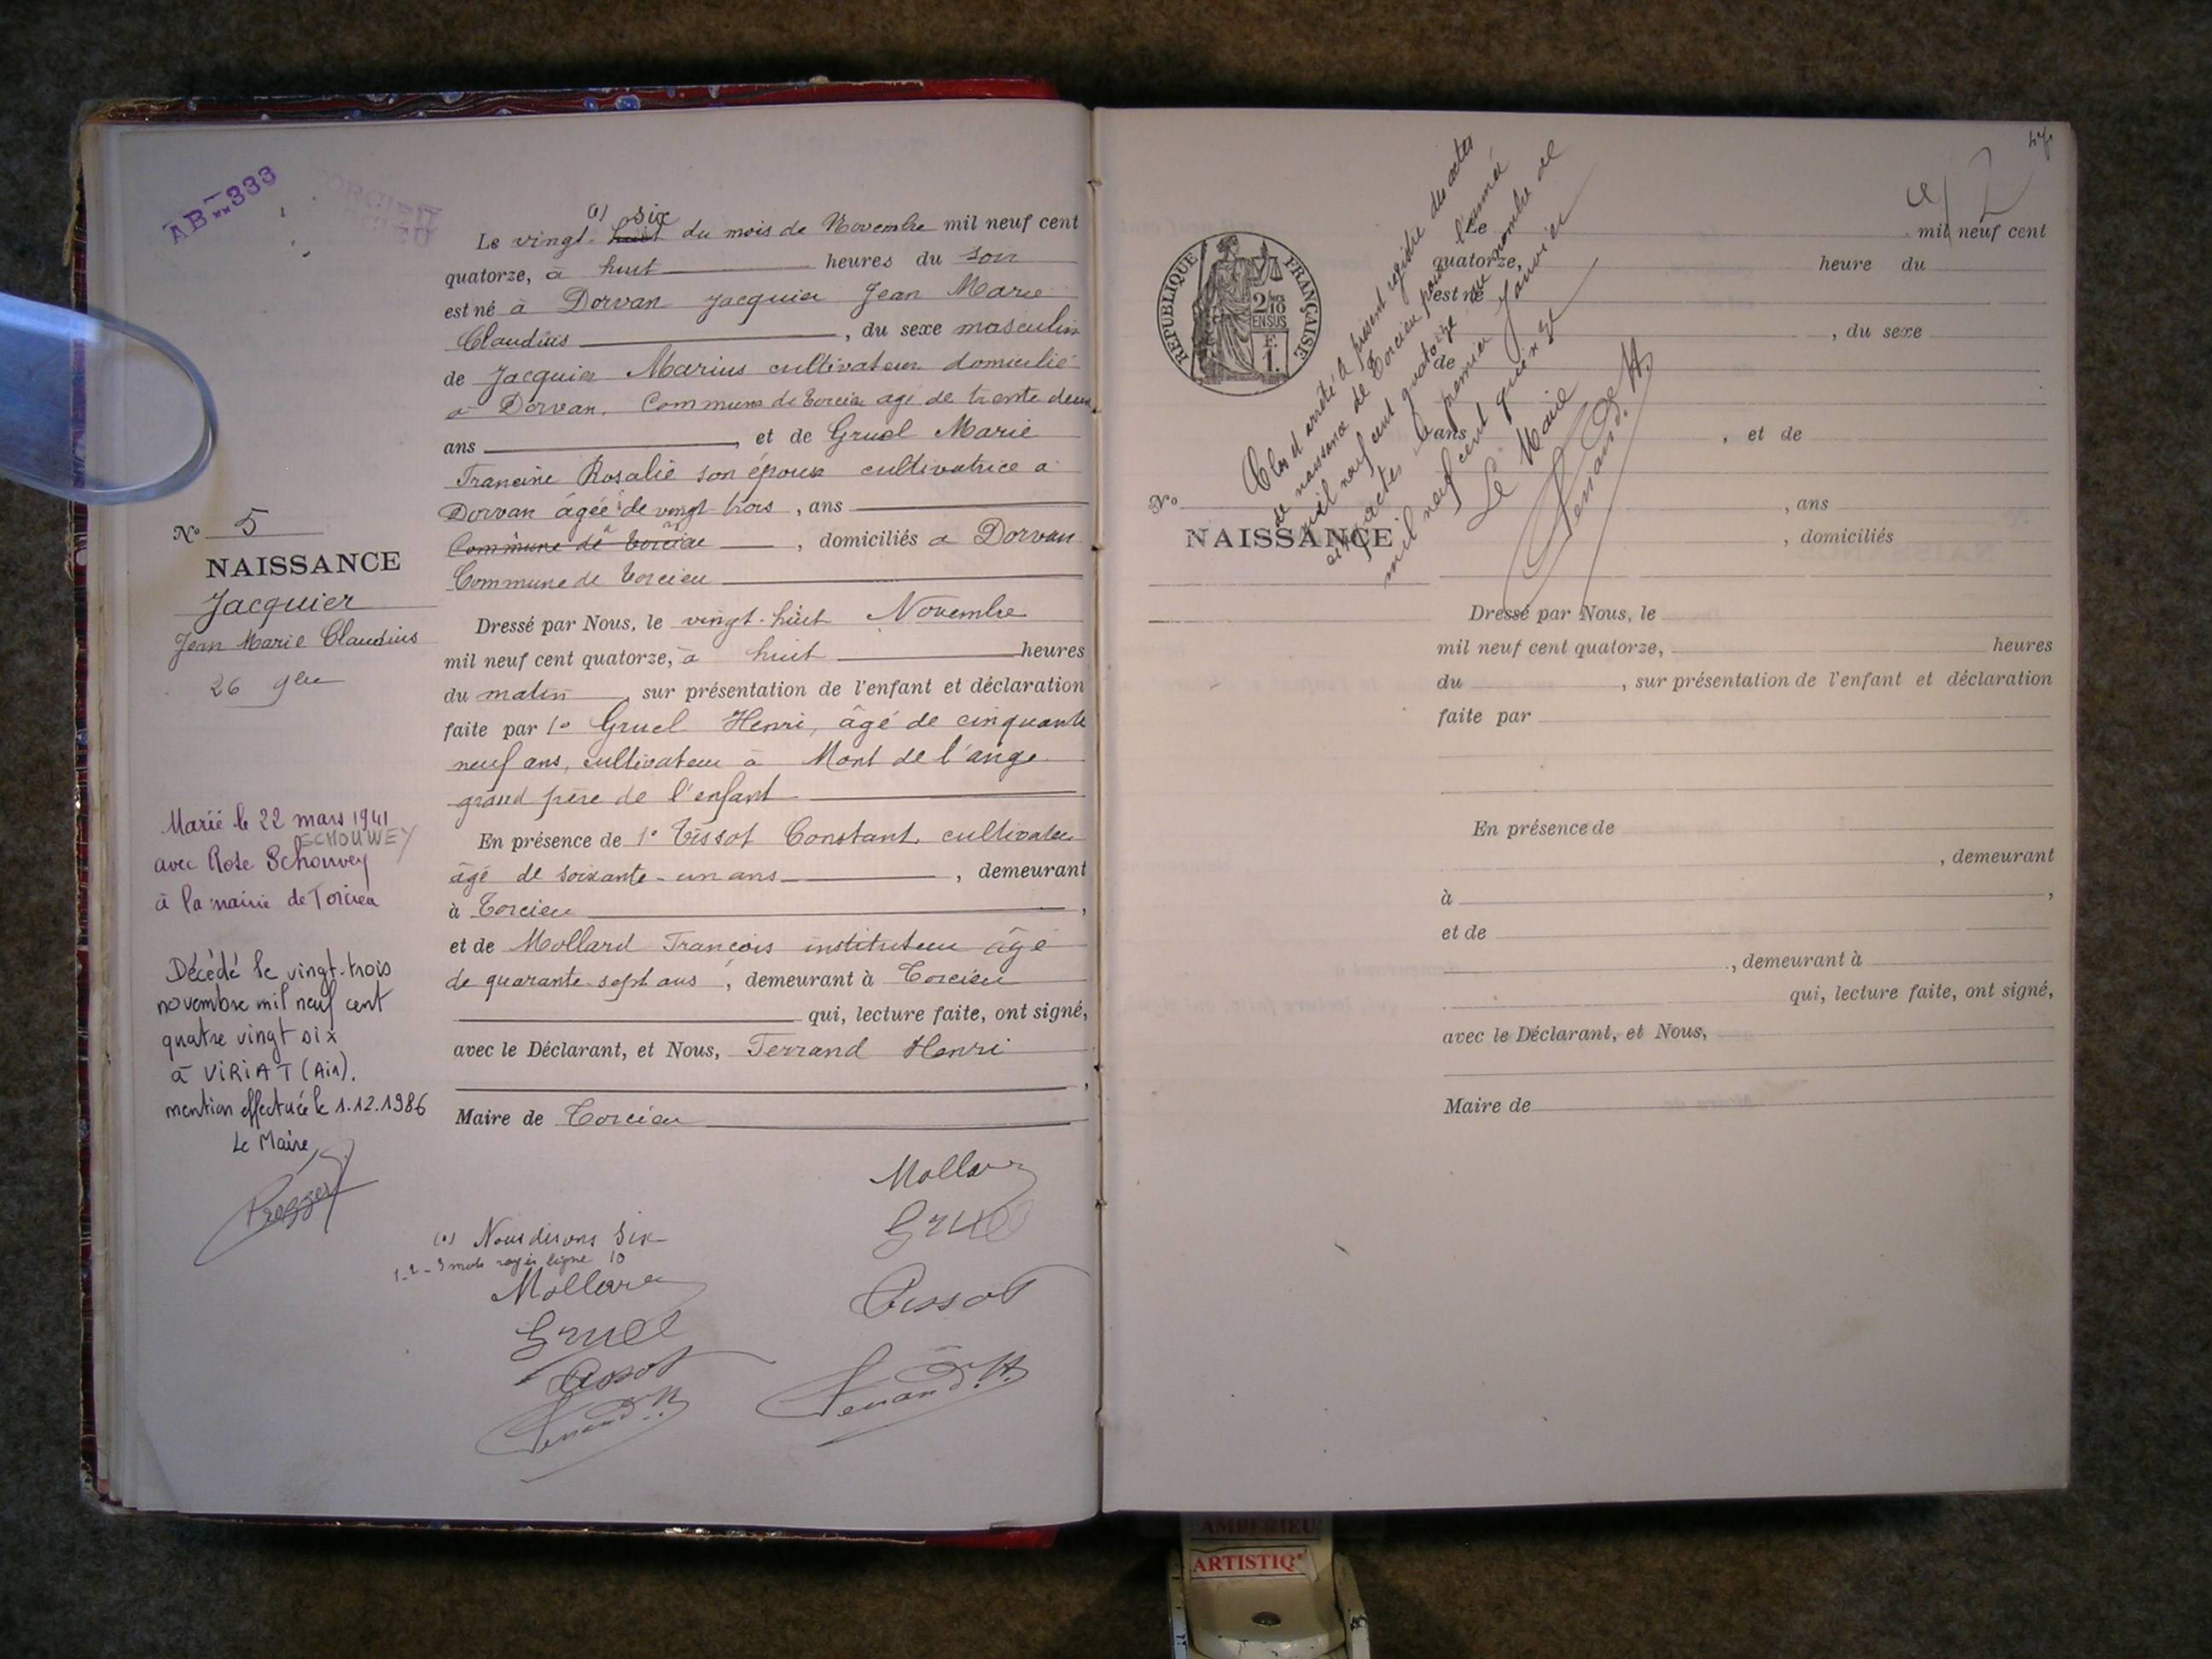 AB 333
(a) six
Le vingt-huit du mois de Novembre mil neuf cent
quatorze, à huit heures du soir
est né à Dorvan Jacquier Jean Marie
Claudius, du sexe masculin
de Jacquier Marius cultivateur domicilié
à Dorvan, Commune de Torcieu agé de trente deux
ans, et de Gruel Marie
Francine Rosalie son épouse cultivatrice a
Dorvan âgée de vingt-trois, ans
Commune de Torcieu, domiciliés a Dorvan
Commune de Torcieu
Dressé par Nous, le vingt-huit Novembre
mil neuf cent quatorze, à huit heures
du matin, sur présentation de l'enfant et déclaration
faite par 1° Gruel Henri, âgé de cinquante
neuf ans, cultivateur à Mont de l'ange
grand père de l'enfant
En présence de 1° Tissot Constant, cultivateur
âgé de soixante-un ans, demeurant
à Torcieu,
et de Mollard François instituteur âgé
de quarante-sept ans, demeurant à Torcieu
qui, lecture faite, ont signé,
avec le Déclarant, et Nous, Ferrand Henri
,
Maire de Torcieu
N° 5
NAISSANCE
Jacquier
Jean Marie Claudius
26 9bre
Marié le 22 mars 1941
SCHOUWEY
avec Rose Schouvey
à la mairie de Torcieu
Décédé le vingt-trois
novembre mil neuf cent
quatre vingt six
à VIRIAT (Ain).
mention effectuée le 1.12.1986
Le Maire
Mollard
Gruel
Tissot
Ferrand. H.
(a) Nous disons Six
1-2-3 mots rayés ligne 10
Mollard
Gruel
Tissot
Ferrand. H
RÉPUBLIQUE FRANÇAISE
2/10
EN SUS
F.
1.
Clos et arrêté le présent registre des actes
de naissance de Torcieu pour l'année
mil neuf cent quatorze au nombre de
actes le premier Janvier
mil neuf cent quinze
Le Maire
Ferrand. H.
N°
NAISSANCE
Le mil neuf cent
quatorze, heure du
est né
, du sexe
de
ans, et de
, ans
, domiciliés
Dressé par Nous, le
mil neuf cent quatorze, heures
du, sur présentation de l'enfant et déclaration
faite par
En présence de
, demeurant
à,
et de
, demeurant à
qui, lecture faite, ont signé,
avec le Déclarant, et Nous,
Maire de
AMBERIEU
ARTISTIQ